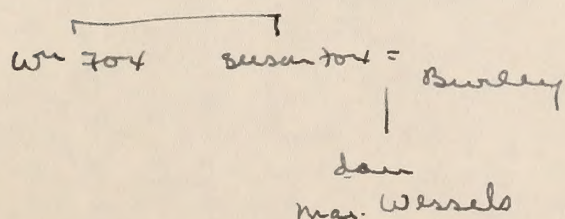 Wm Fox Susan Fox =
Burley
dau
mar. Wessels